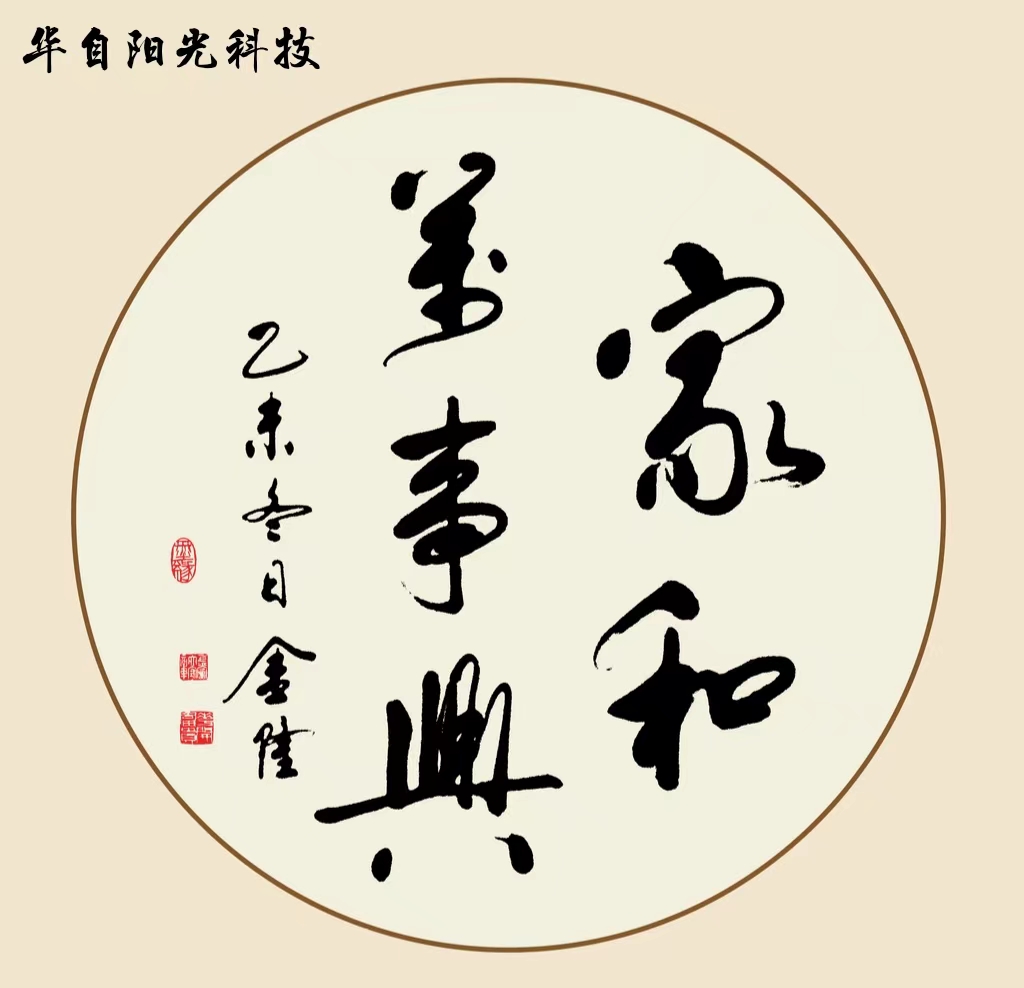 华自阳光科技
家和
萬事興
乙未冬日金陵